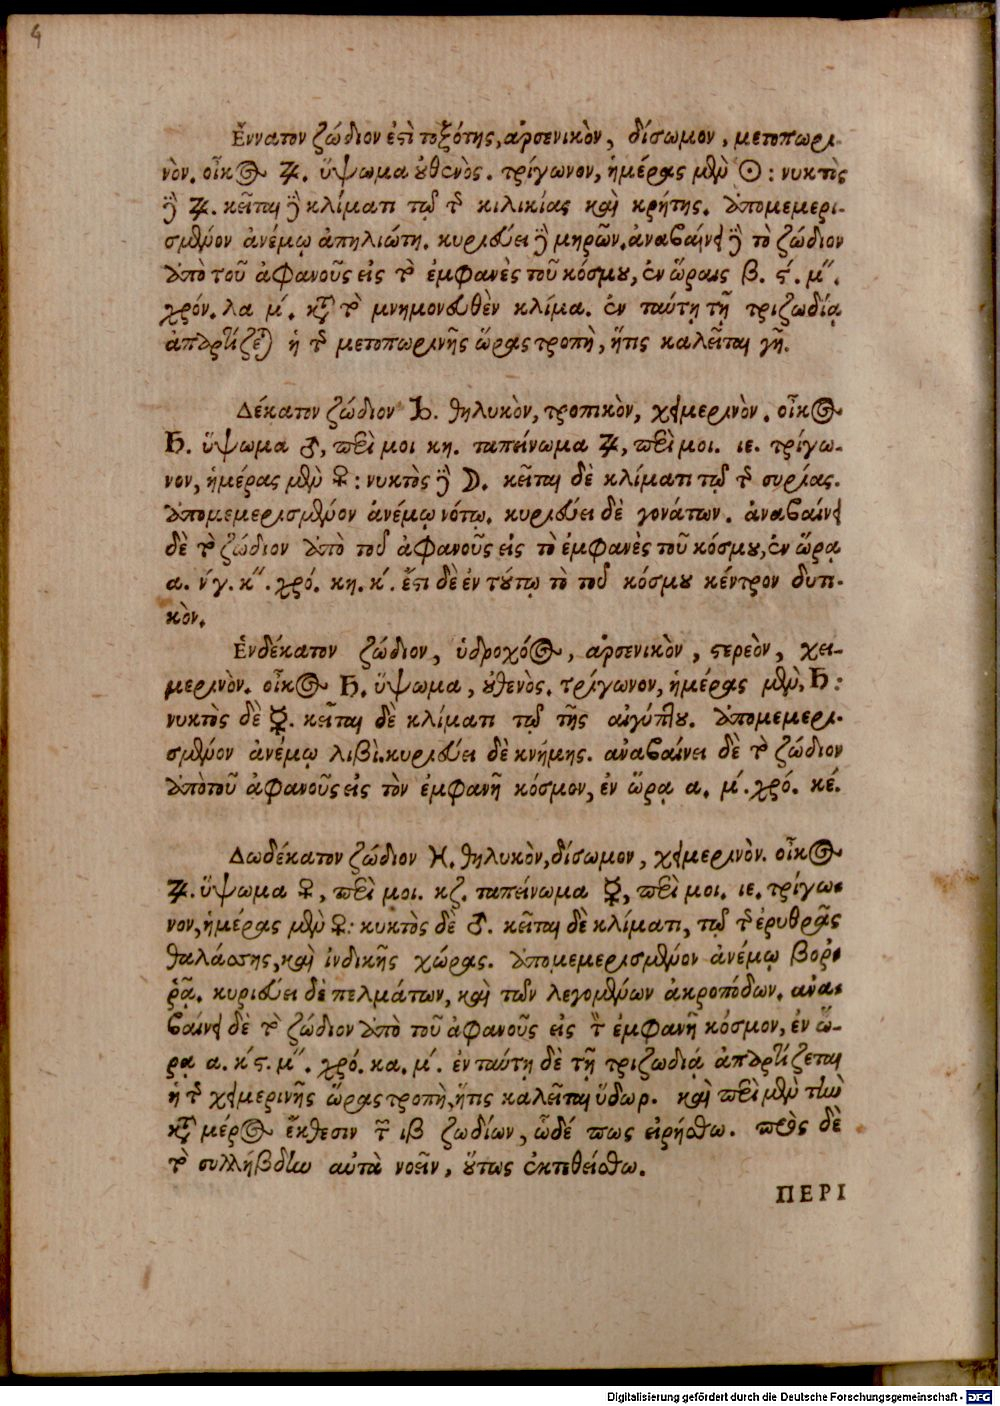 4
Ἔννατον ζώδιον ἐστὶ τοξότης, ἀρσενικὸν, δίσωμον, μετοπωρι-
νὸν. οἶκος ♃. ὕψωμα οὐθενὸς. τρίγωνον, ἡμέρας μὲν ☉ : νυκτὸς
δὲ ♃. κεῖται δὲ κλίματι τῷ τῆς κιλικίας καὶ κρήτης. ὑπομεμερι-
σμένον ἀνέμῳ ἀπηλιώτῃ. κυριεύει δὲ μηρῶν. ἀναβαίνει δὲ τὸ ζώδιον
ὑπὸ τοῦ ἀφανοῦς εἰς τὸ ἐμφανὲς τοῦ κόσμου, ἐν ὥραις β. ϛ΄. μ΄΄.
χρόν. λα μ΄. κατὰ τὸ μνημονευθὲν κλίμα. ἐν ταύτῃ τῇ τριζωδίᾳ
ἀπαρτίζεται ἡ τῆς μετοπωρινῆς ὥρας τροπὴ, ἥτις καλεῖται γῆ.
Δέκατον ζώδιον ♑. θηλυκὸν, τροπικὸν, χειμερινὸν. οἶκος
♄. ὕψωμα ♂, περὶ μοι κη. ταπείνωμα ♃, περὶ μοι. ιε. τρίγω-
νον, ἡμέρας μὲν ♀ : νυκτὸς δὲ ☽. κεῖται δὲ κλίματι τῷ τῆς συρίας.
ὑπομεμερισμένον ἀνέμῳ νότῳ. κυριεύει δὲ γονάτων. ἀναβαίνει
δὲ τὸ ζώδιον ὑπὸ τοῦ ἀφανοῦς εἰς τὸ ἐμφανὲς τοῦ κόσμου, ἐν ὥρᾳ
α. ν΄γ. κ΄΄. χρό. κη. κ΄. ἔστι δὲ ἐν τούτῳ τὸ τοῦ κόσμου κέντρον δυτι-
κὸν.
Ἑνδέκατον ζώδιον, ὑδροχόος, ἀρσενικὸν, στερεὸν, χει-
μερινὸν. οἶκος ♄. ὕψωμα, οὐθενὸς. τρίγωνον, ἡμέρας μὲν, ♄ :
νυκτὸς δὲ ☿. κεῖται δὲ κλίματι τῷ τῆς αἰγύπτου. ὑπομεμερι-
σμένον ἀνέμῳ λιβὶ. κυριεύει δὲ κνήμης. ἀναβαίνει δὲ τὸ ζώδιον
ὑπὸ τοῦ ἀφανοῦς εἰς τὸν ἐμφανῆ κόσμον, ἐν ὥρᾳ α. μ΄. χρό. κέ.
Δωδέκατον ζώδιον ♓. θηλυκὸν, δίσωμον, χειμερινὸν. οἶκος
♃. ὕψωμα ♀, περὶ μοι. κζ. ταπείνωμα ☿, περὶ μοι. ιε. τρίγω-
νον, ἡμέρας μὲν ♀ : κυκτὸς δὲ ♂. κεῖται δὲ κλίματι, τῷ τῆς ἐρυθρᾶς
θαλάσσης, καὶ ἰνδικῆς χώρας. ὑπομεμερισμένον ἀνέμῳ βοῤ-
ῥᾷ. κυριεύει δὲ πελμάτων, καὶ τῶν λεγομένων ἀκροπόδων. ἀνα-
βαίνει δὲ τὸ ζώδιον ὑπὸ τοῦ ἀφανοῦς εἰς τὸν ἐμφανῆ κόσμον, ἐν ὥ-
ρᾳ α. κ΄ϛ. μ΄΄. χρό. κα. μ΄. ἐν ταύτῃ δὲ τῇ τριζωδίᾳ ἀπαρτίζεται
ἡ τῆς χειμερινῆς ὥρας τροπὴ, ἥτις καλεῖται ὕδωρ. καὶ περὶ μὲν τὴν
κατὰ μέρος ἔκθεσιν τῶν ιβ ζωδίων, ὧδέ πως εἰρήσθω. πρὸς δὲ
τὸ συλλήβδην αὐτὰ νοεῖν, οὕτως ἐκτιθείσθω.
ΠΕΡΙ
Digitalisierung gefördert durch die Deutsche Forschungsgemeinschaft - DFG